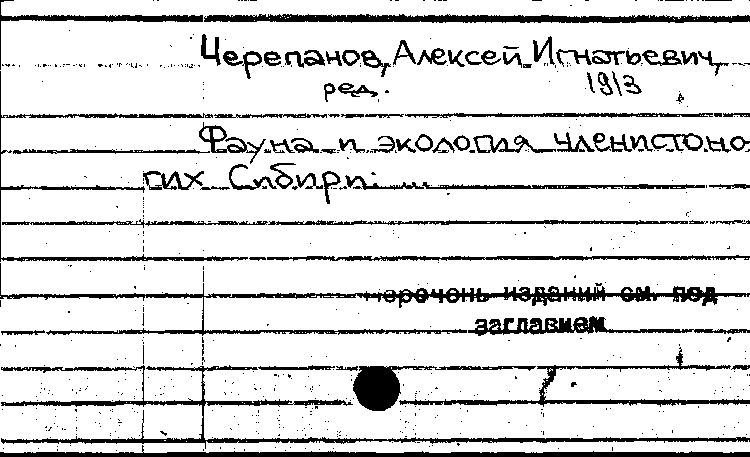 Черепанов, Алексей Игнатьевич,
ред. 1913
Фауна и экология членистоно
гих Сибири: ...
перечень изданий см. под
заглавием